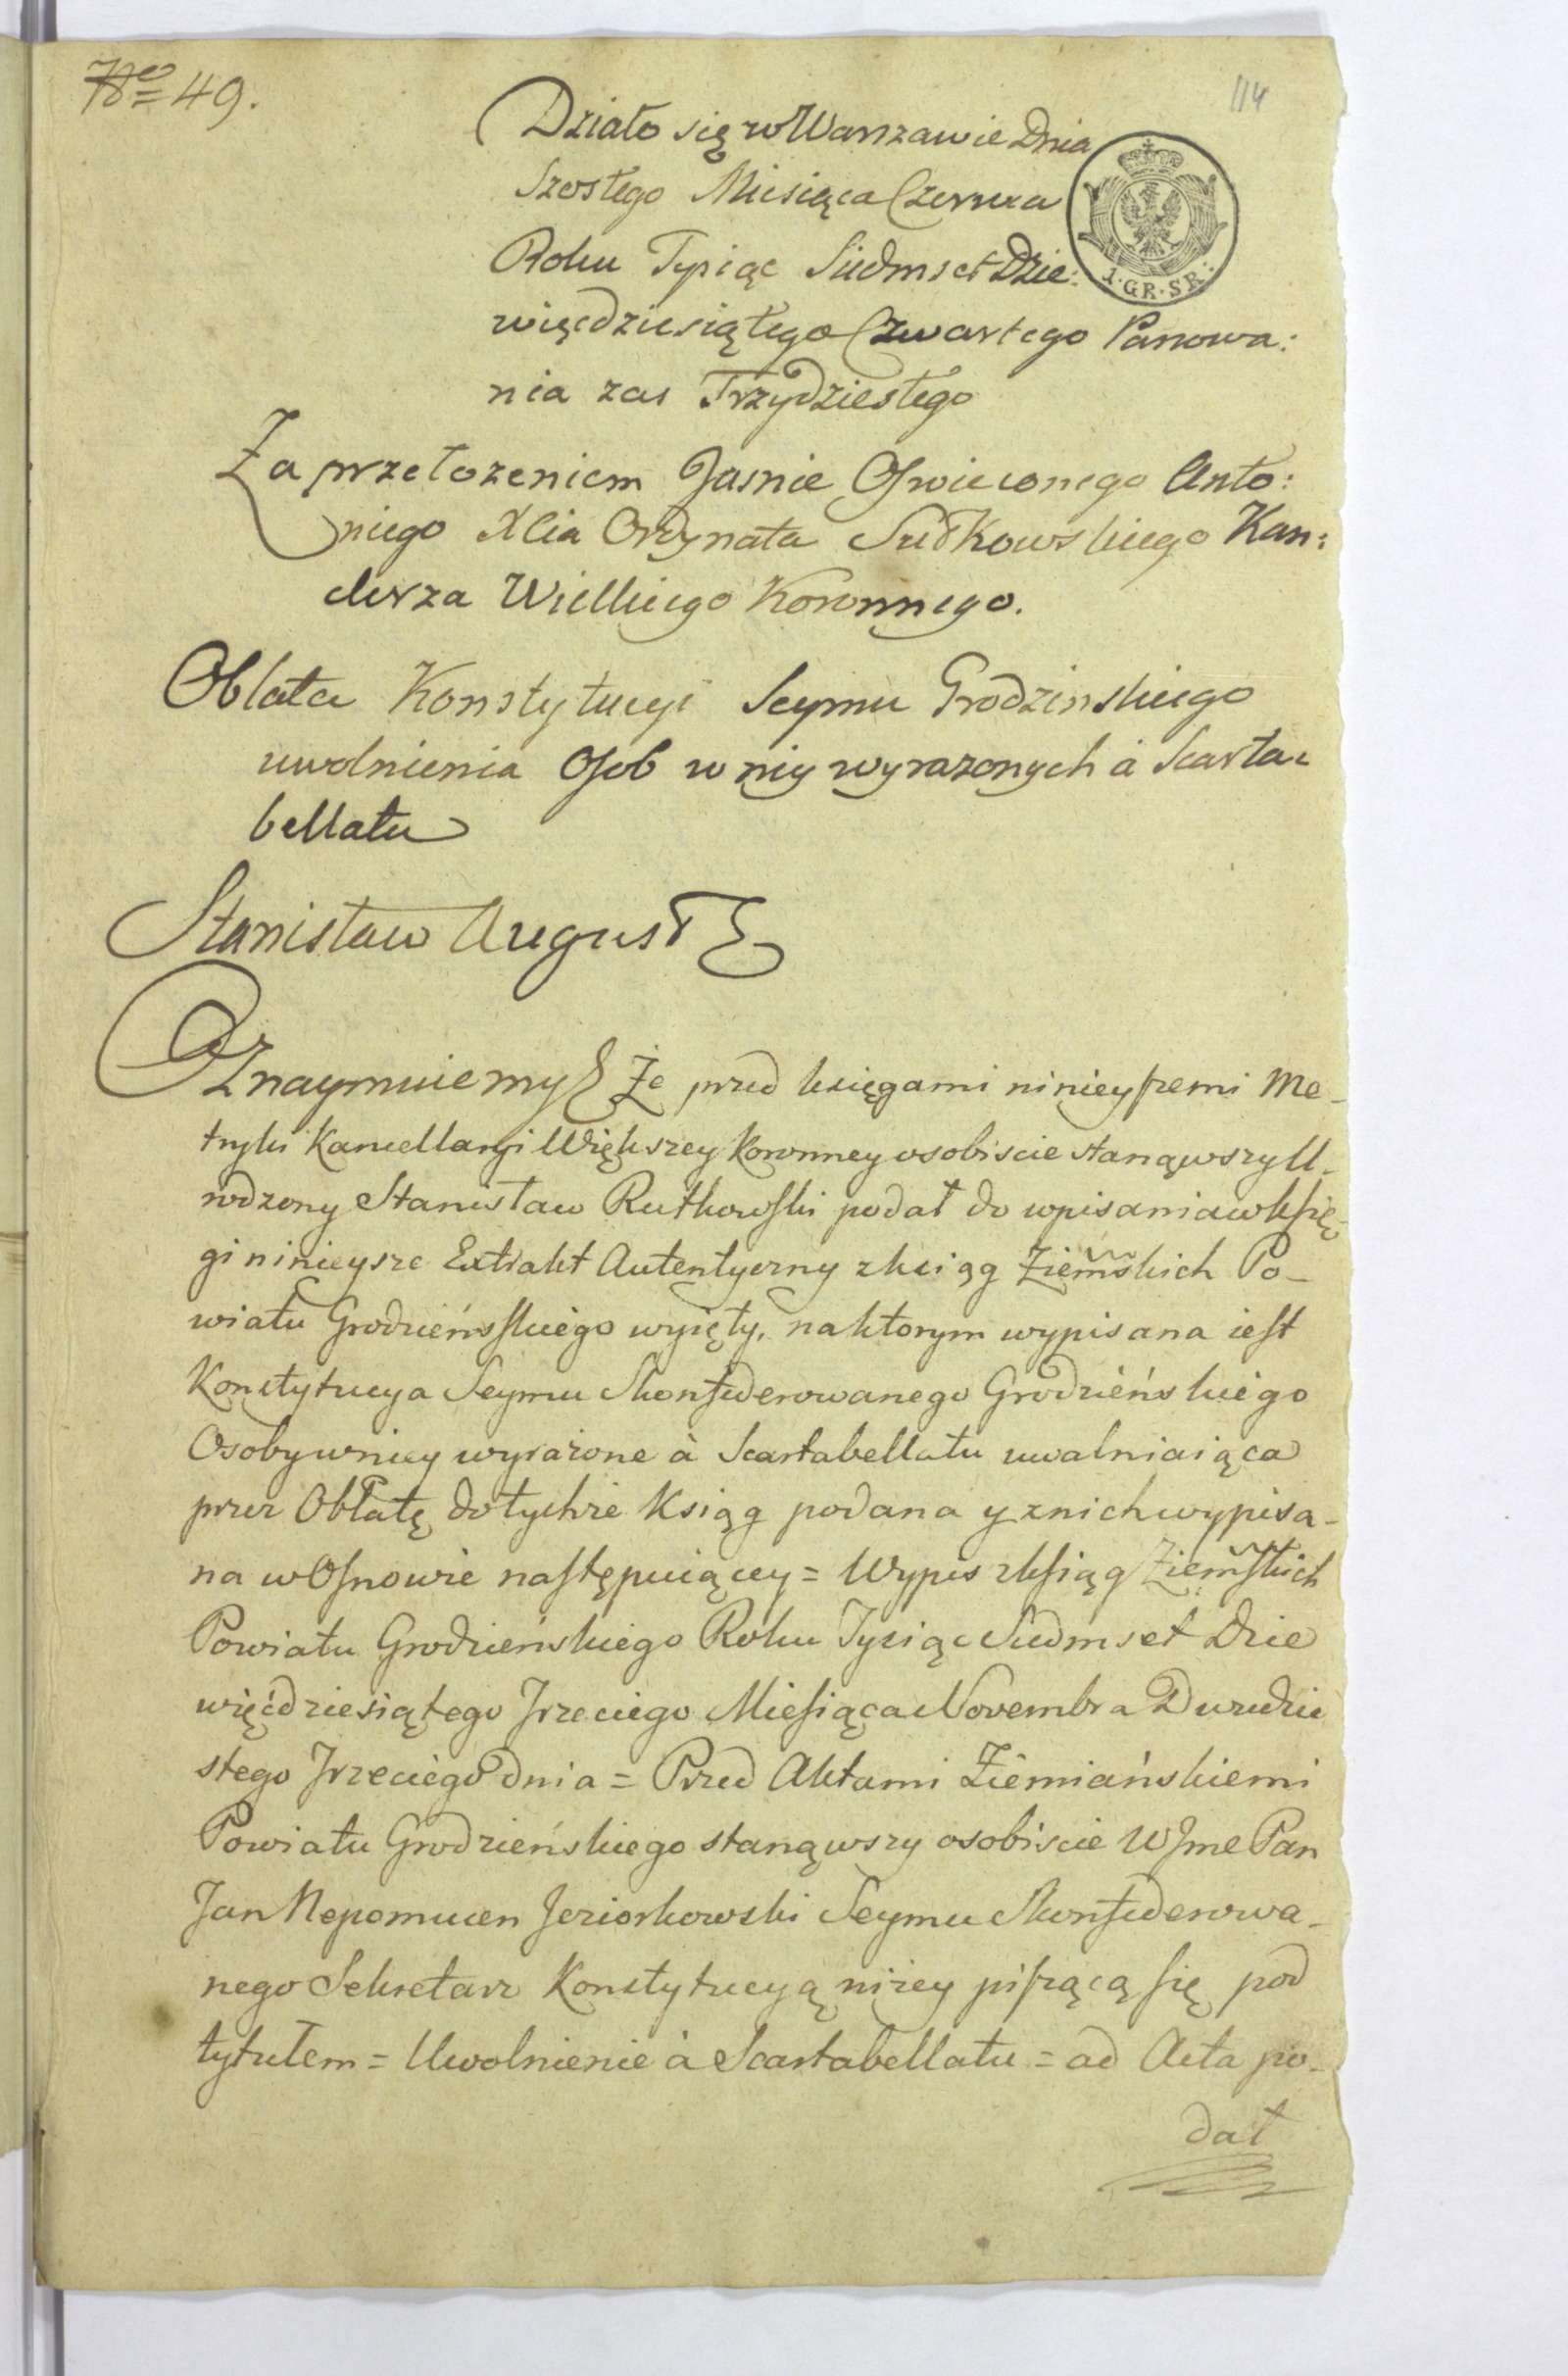 No 49.
114
Działo się w Warszawie Dnia
Szostego Miesiąca Czerwca
Roku Tysiąc Siedmset Dzie:
1·GR·SR·
więćdziesiątego Czwartego Panowa:
nia zas Trzydziestego
Za przełozeniem Jasnie Oswieconego Anto:
niego Xcia Ordynata Sułkowskiego Kan:
clerza Wielkiego Koronnego.
Oblata Konstytucyi Seymu Grodzinskiego
uwolnienia Osob w niy wyrazonych à Scarta=
bellatu
Stanisław August
Oznaymuiemy Że przed księgami ninieyszemi Me-
tryki Kancellaryi Większey Koronney osobiscie stanąwszy U-
rodzony Stanisław Rutkowski podał do wpisania w Księ-
gi ninieysze Extrakt Autentyczny z ksiąg Ziemskich Po-
wiatu Grodzieńskiego wyięty, na ktorym wypisana iest
Konstytucya Seymu Skonfederowanego Grodzieńskiego
Osoby w niey wyrażone à Scartabellatu uwalniaiąca
przez Obłatę do tychże Ksiąg podana y z nich wypisa-
na w Osnowie następuiącey = Wypis z Ksiąg Ziemskich
Powiatu Grodzieńskiego Roku Tysiąc Siedmset Dzie
więćdziesiątego Trzeciego Miesiąca Novembra Dwudzie
stego Trzeciego dnia = Przed Aktami Ziemiańskiemi
Powiatu Grodzieńskiego stanąwszy osobiscie WJmc Pan
Jan Nepomucen Jeziorkowski Seymu Skonfederowa-
nego Sekretarz Konstytucyą niżey piszącą się pod
tytułem = Uwolnienie à Scartabellatu = ad Acta po-
dał